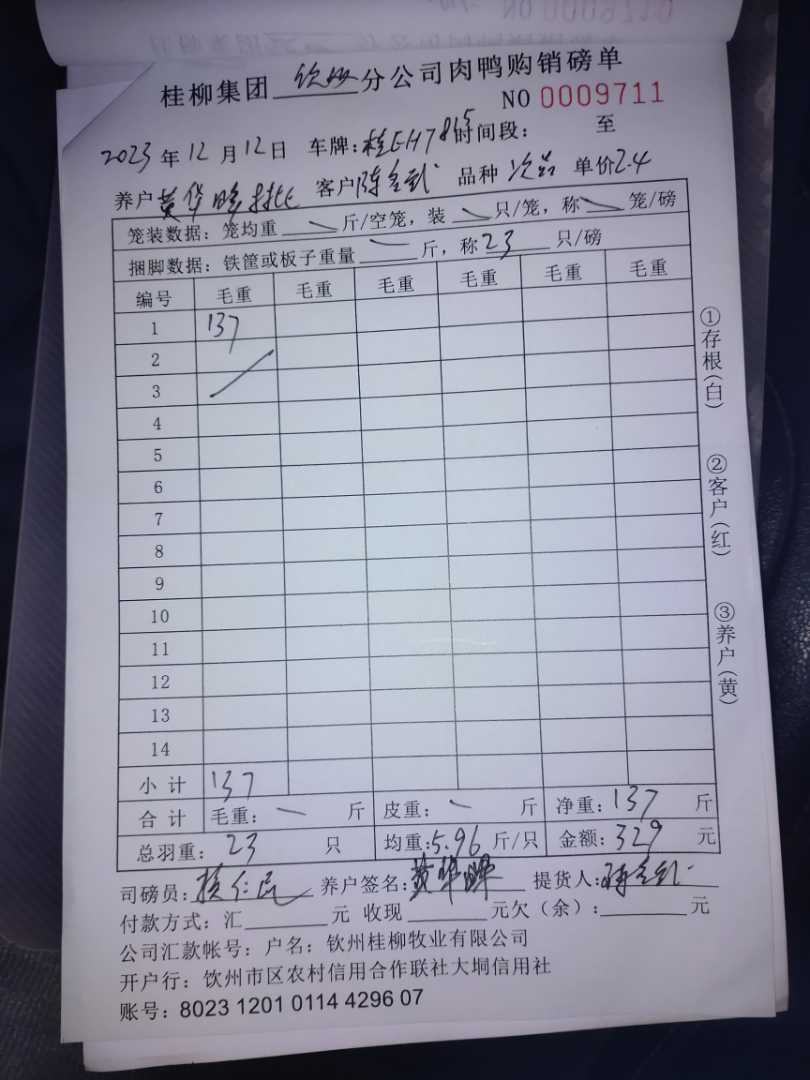 桂柳集团 钦州 分公司肉鸭购销磅单
NO 0009711
2023年12月12日 车牌:桂EH7815时间段: 至
养户黄华 客户陈 品种次苗 单价2.4
笼装数据:笼均重 斤/空笼,装 只/笼,称 笼/磅
捆脚数据:铁筐或板子重量 斤,称23只/磅
编号 毛重 毛重 毛重 毛重 毛重 毛重
1 137
2
3
4
5
6
7
8
9
10
11
12
13
14
小计 137
合计 毛重: 一 斤 皮重: 一 斤 净重:137斤
总羽重: 23 只 均重:5.96斤/只 金额:329元
司磅员: 仁民 养户签名:黄华 提货人:
付款方式:汇 元 收现 元欠(余): 元
公司汇款帐号:户名:钦州桂柳牧业有限公司
开户行:饮州市区农村信用合作联社大垌信用社
账号:8023 1201 0114 4296 07
①存根(白)
②客户(红)
③养户(黄)